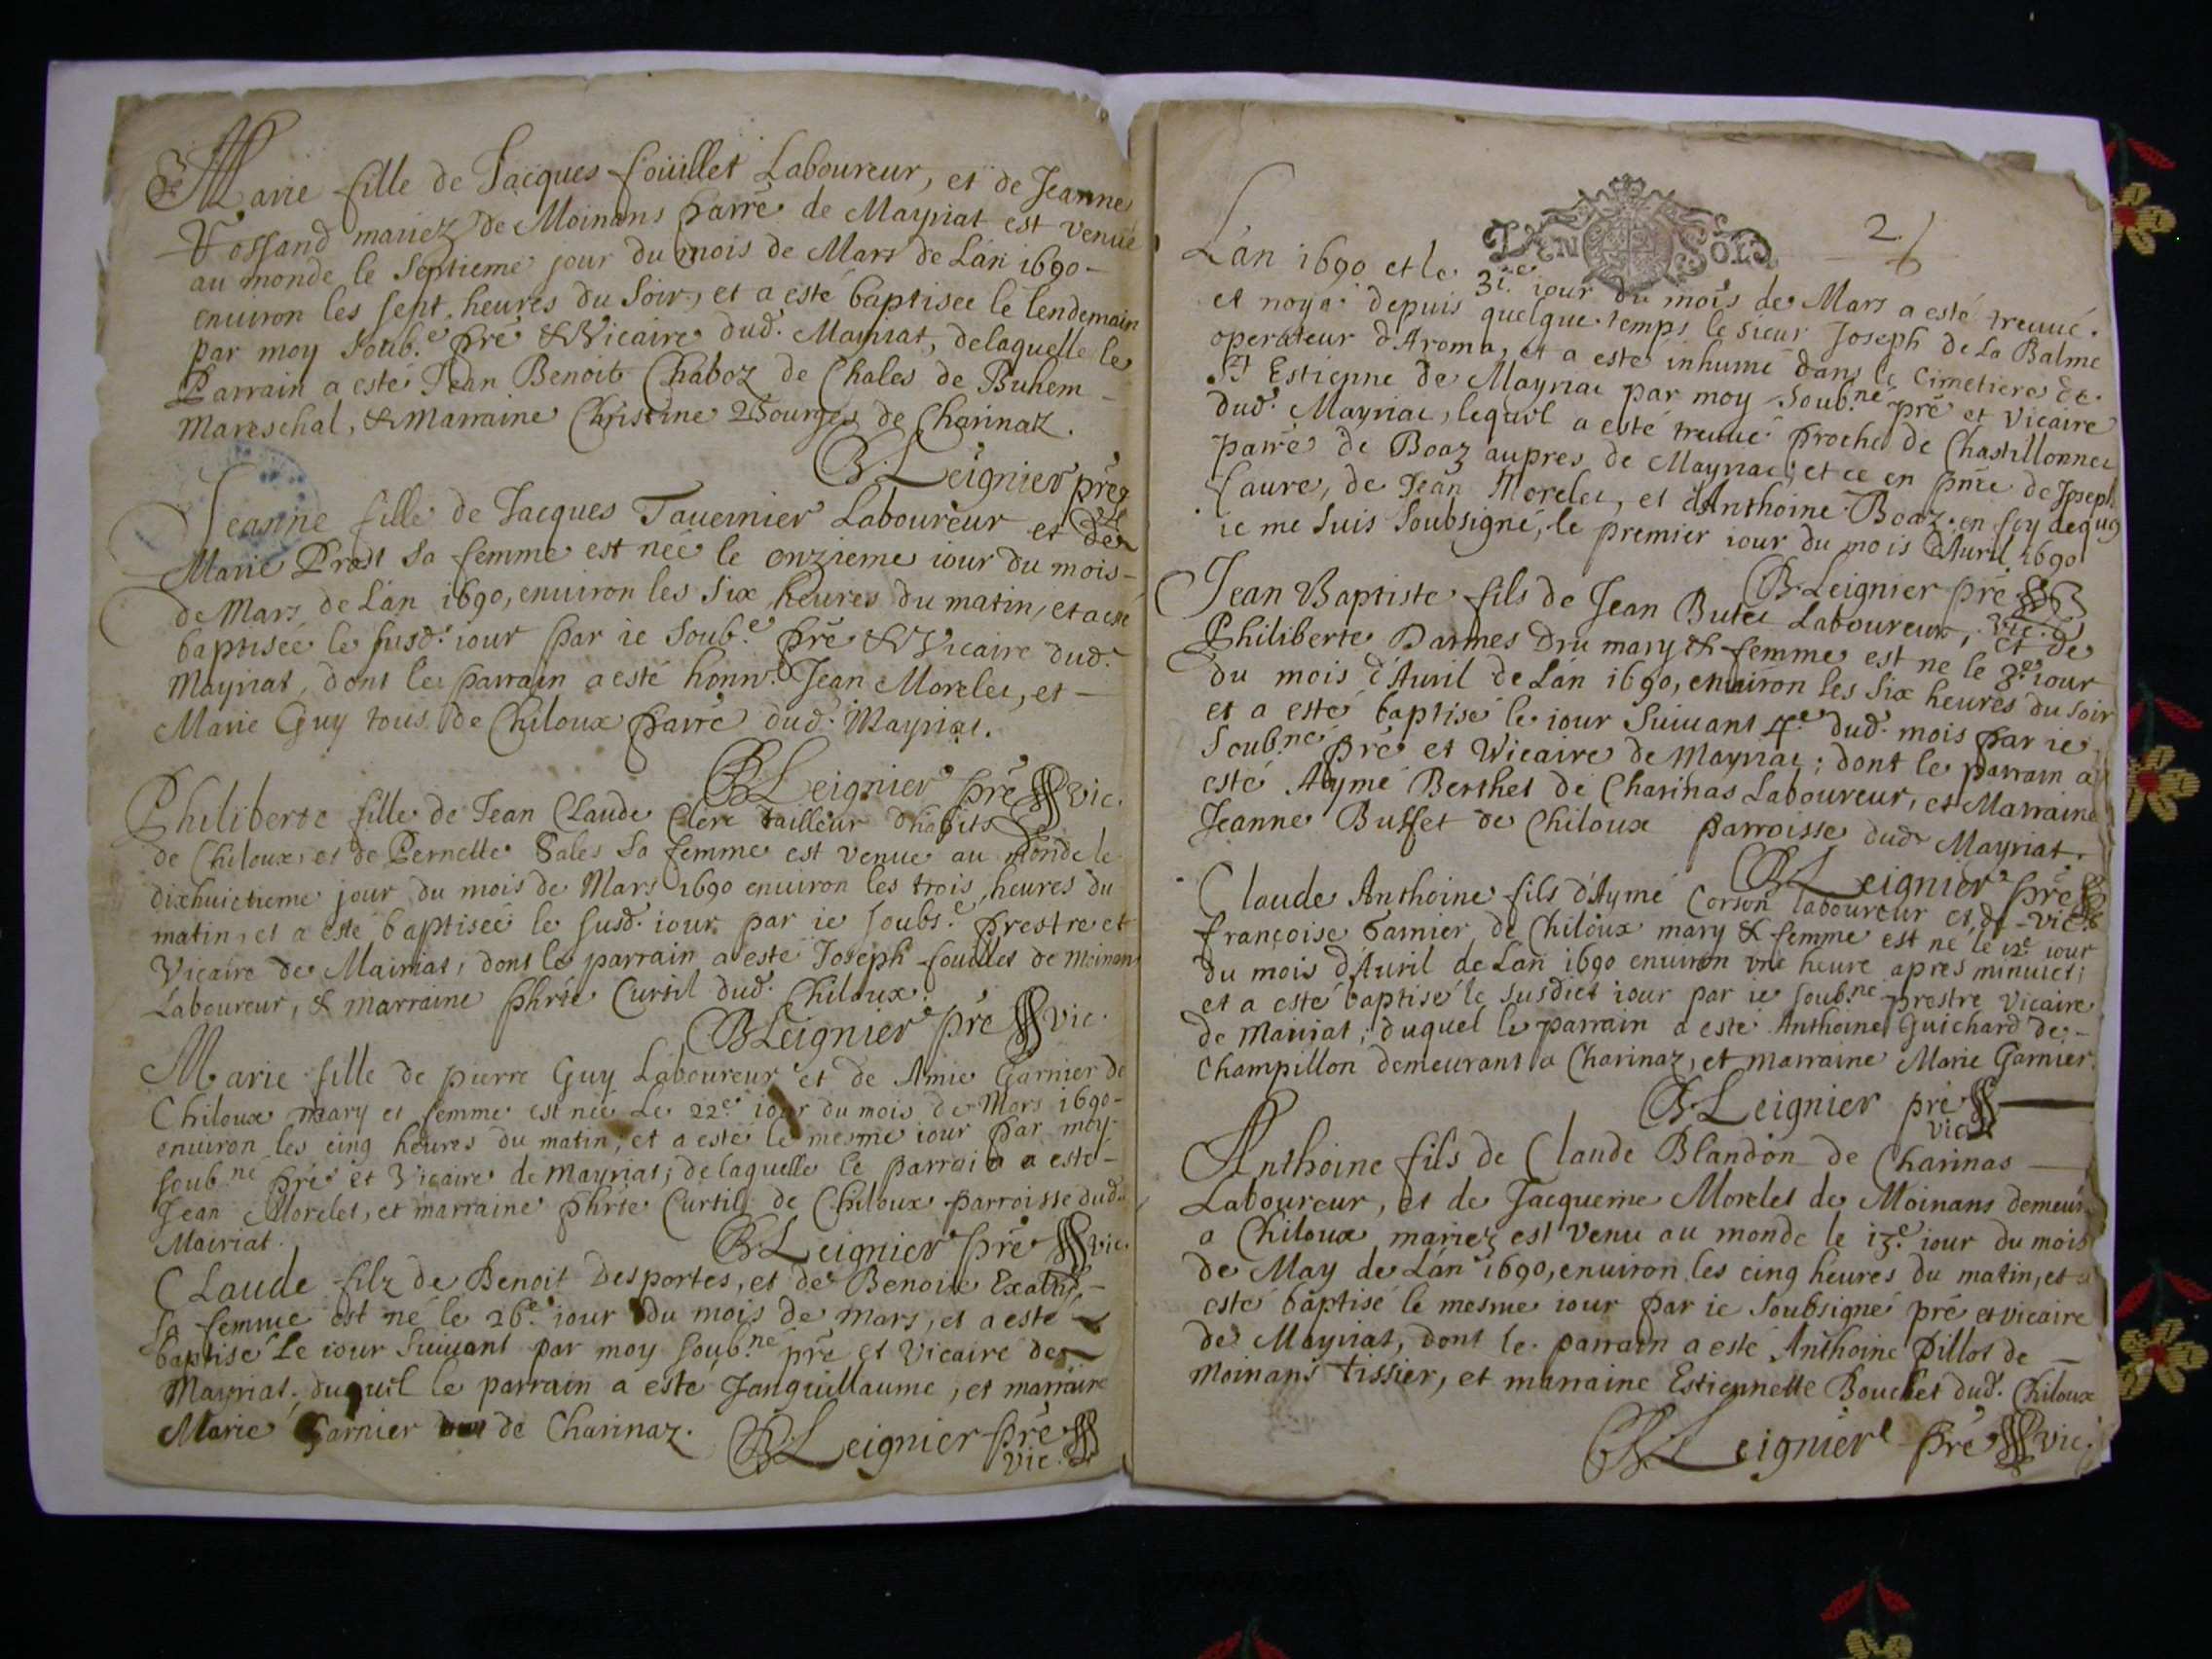 Marie fille de Jacques foüillet Laboureur, et de Jeanne
Vossand mariez de Moinans parre de Mayriat est venue
au monde le septieme jour du mois de Mars de L'an 1690 -
enuiron les sept heures du soir, et a esté baptisee le lendemain
par moy soub.e pre & Vicaire dud. Mayriat, delaquelle le
Parrain a esté Jean Benoit Chaboz de Chales de Buhem -
Mareschal, & Marraine Christine Bourges de Charinaz.
B. Leignier pre
Jeanne fille de Jacques Tauernier Laboureur et de
Marie Prost sa femme est née le onzieme iour du mois -
de Mars de L'an 1690, enuiron les six heures du matin, et a esté
baptisée le susd. iour par ie soub.e pre & Vicaire dud.
Mayriat, dont le parrain a esté honn. Jean Morelet, et -
Marie Guy tous de Chiloux parre dud. Mayriat.
B Leignier pre vic.
Philiberte fille de Jean Claude Clerc tailleur d'habits
de Chiloux, et de Pernette Sales sa femme est venue au monde le
dixhuictieme jour du mois de Mars 1690 enuiron les trois heures du
matin, et a esté baptiseé le susd. iour par ie soubs.e prestre et
Vicaire de Mairiat, dont le parrain a esté Joseph fouillet de Moinans
Laboureur, & marraine phrte Curtil dud. Chiloux.
B Leignier pre vic.
Marie fille de pierre Guy Laboureur et de Amie Garnier de
Chiloux mary et femme est née Le 22e iour du mois de Mars 1690 -
enuiron les cinq heures du matin, et a esté le mesme iour par moy
soub.né pre et Vicaire de Mayriat; delaquelle le parrain a esté -
Jean Morelet, et marraine phrte Curtil de Chiloux parroisse dud.
Mairiat.
B. Leignier pre vic.
Claude filz de Benoit Desportes, et de Benoite
sa femme est né le 26e iour du mois de Mars, et a esté
baptisé Le iour suiuant par moy soub.né pre et Vicaire de
Mayriat, duquel le parrain a esté Janguillaume, et marraine
Marie Garnier de Charinaz.
B. Leignier pre
vic.
2.
L'an 1690 et le 31.e iour du mois de Mars a esté treuué
et noyé depuis quelque temps le sieur Joseph de La Balme
operateur d'Aroma, et a esté inhumé dans le Cimetiere de
St Estienne de Mayriat par moy soub.né pre et vicaire
dud. Mayriat, lequel a esté treuué proche de Chastillonnet
parre de Boaz aupres de Mayriat; et ce en pnce de Joseph
faure, de Jean Morelet, et d'Anthoine Boaz. en foy dequoy
ie me suis soubsigné, le premier iour du mois d'Auril 1690
B. Leignier pre
vic.
Jean Baptiste fils de Jean Butet Laboureur, et de
Philiberte Darmes Dru mary & femme est ne le 3e iour
du mois d'Auril de L'an 1690, enuiron les six heures du soir
et a esté baptisé le iour suiuant 4.e dud. mois par ie
soub.né pre et Vicaire de Mayriat; dont le parrain a
esté Aymé Berthet de Charinas Laboureur, et Marraine
Jeanne Buffet de Chiloux parroisse dud. Mayriat.
B Leignier pre
vic.
Claude Anthoine fils d'Aymé Corson laboureur et de
françoise Garnier de Chiloux mary & femme est né le 12e iour
du mois d'Auril de L'an 1690 enuiron vne heure apres minuict;
et a esté baptisé le susdict iour par ie soub.né prestre Vicaire
de Mairiat; duquel le parrain a esté Anthoine Guichard de -
Champillon demeurant a Charinaz, et marraine Marie Garnier.
B. Leignier pre
vic.
Anthoine fils de Claude Blandon de Charinas
Laboureur, et de Jacqueme Morelet de Moinans demeur.
a Chiloux mariez est venu au monde le 13.e iour du mois
de May de L'an 1690, enuiron les cinq heures du matin, et a
esté baptisé le mesme iour par ie soubsigné pre et vicaire
de Mayriat, dont le parrain a esté Anthoine Pillot de
Moinans tissier, et marraine Estiennette Bouchet dud. Chiloux
B. Leignier pre vic.